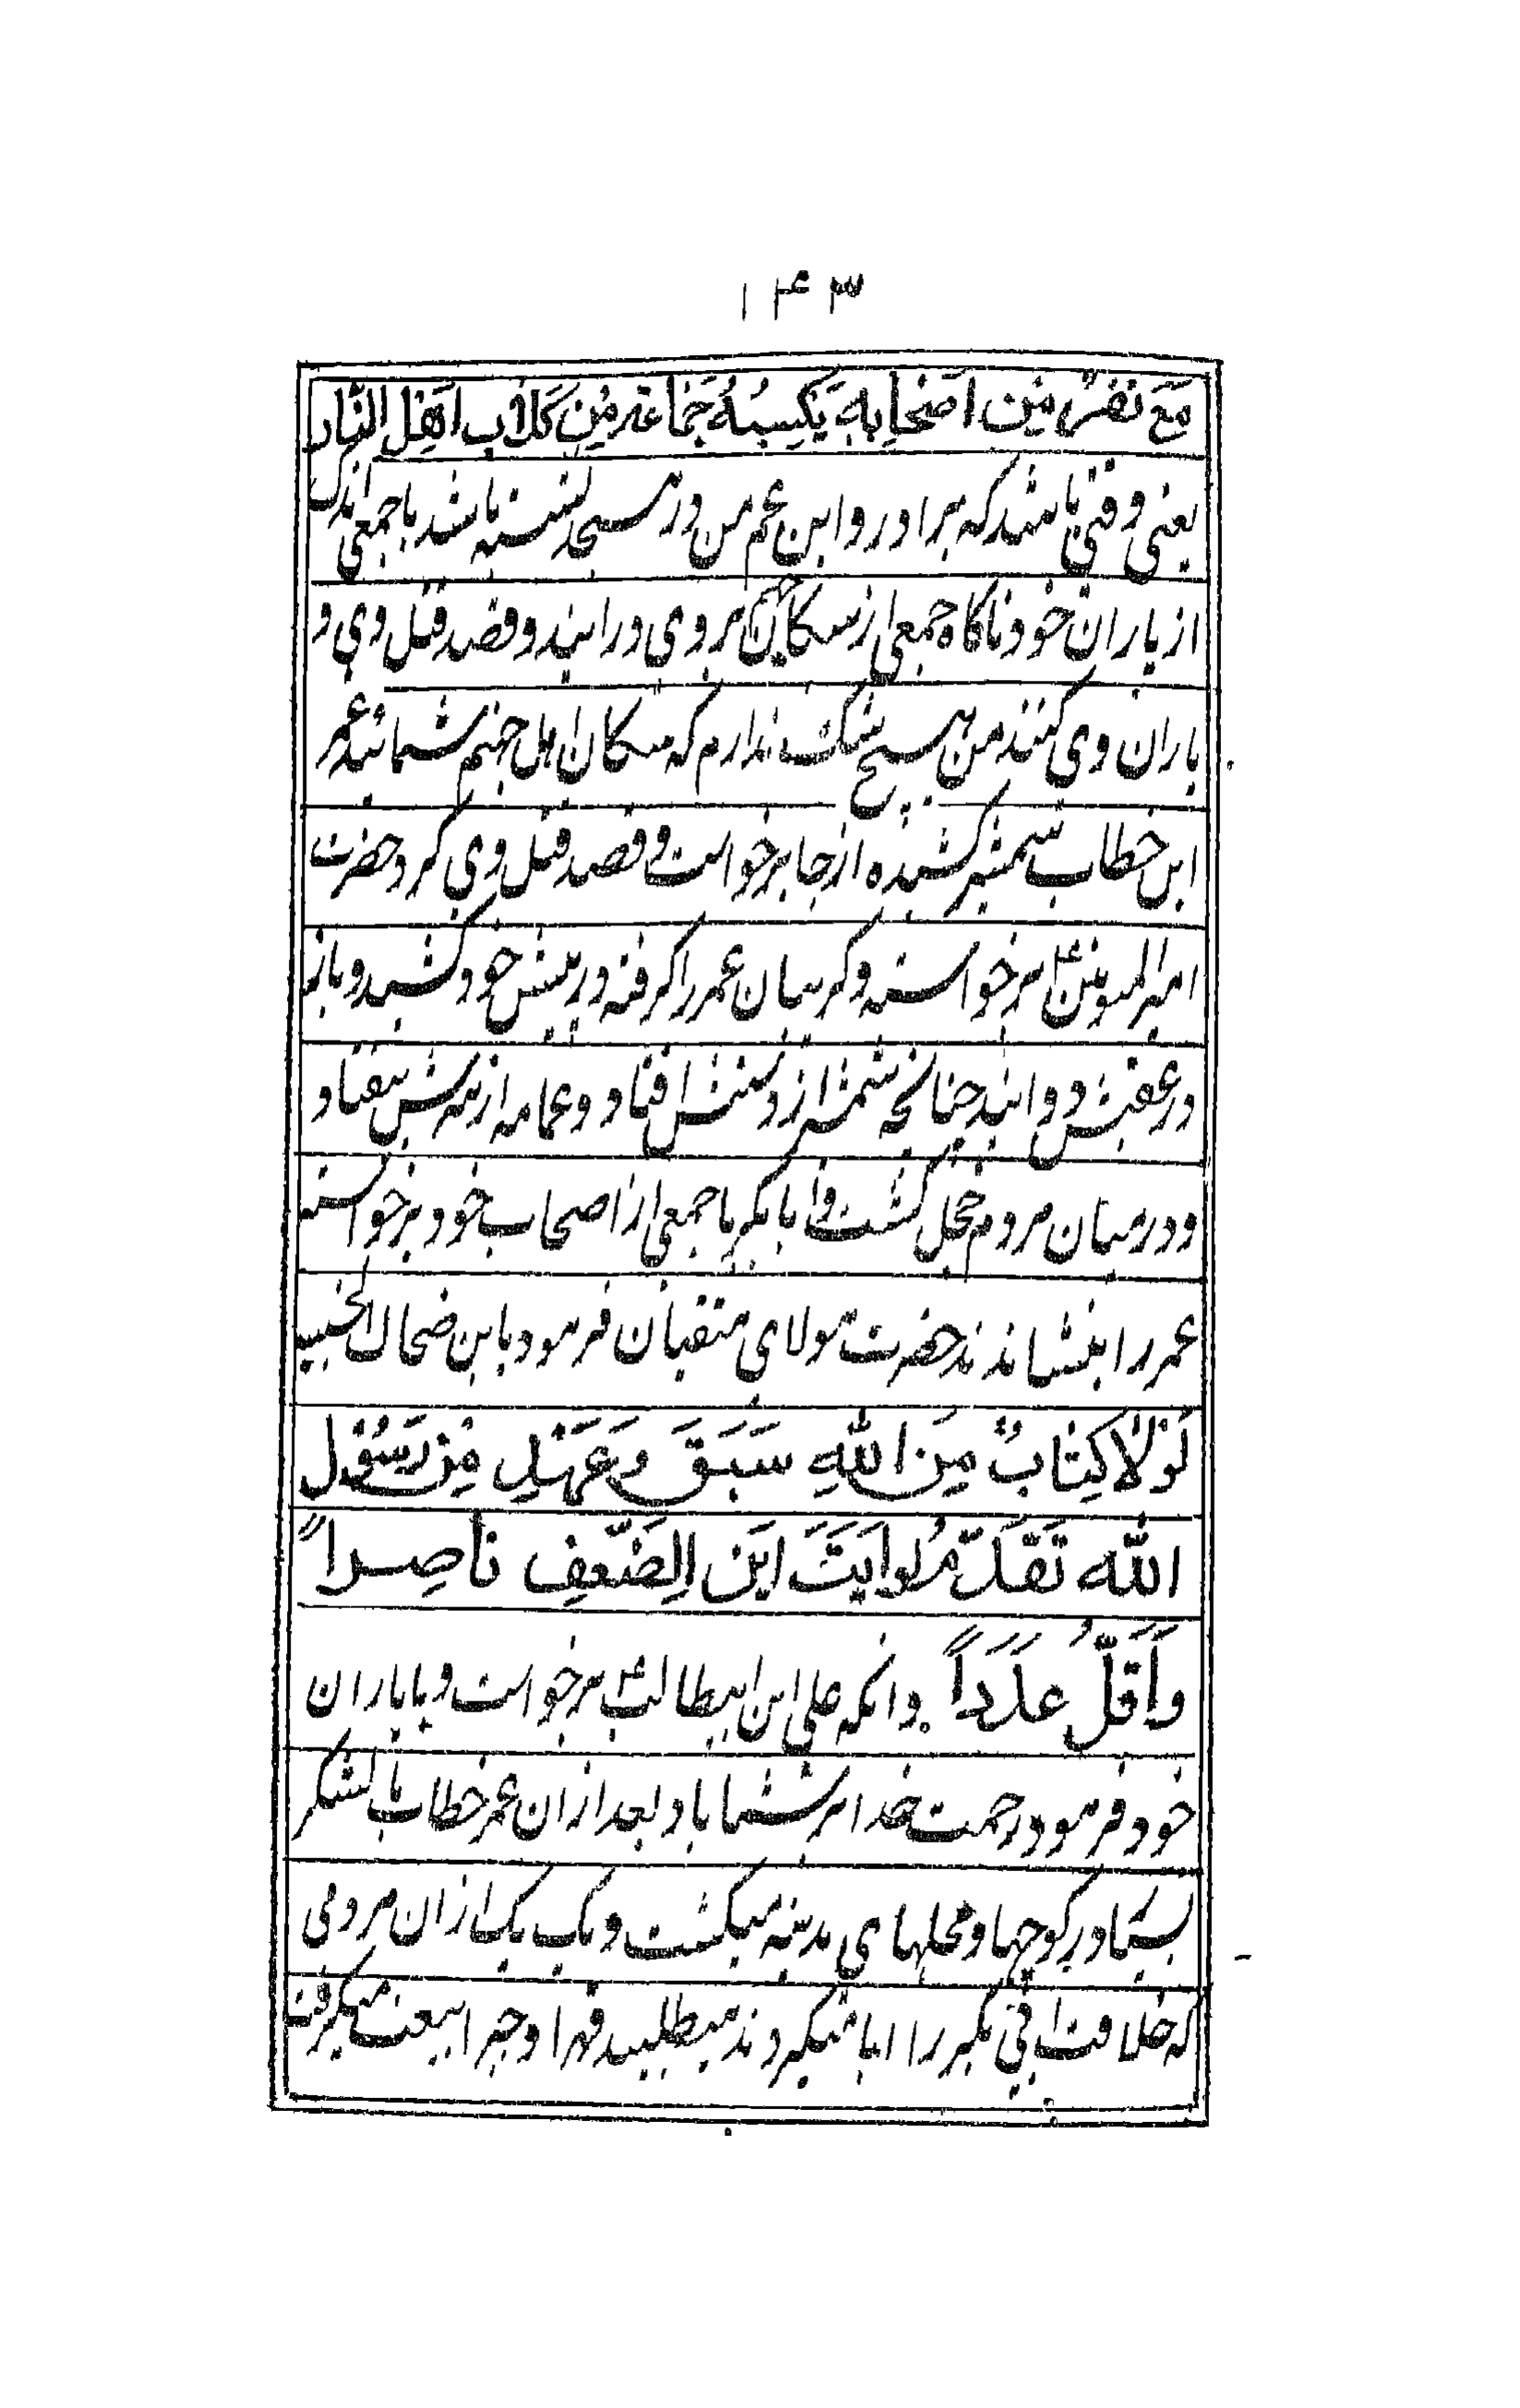 ۱۴۳
مَعَ نَفَرٍ مِنْ اَصْحٰابِهِ يَكْبِسُهُ جَمٰاعَة مِنْ كِلاٰبِ اَهْلِ النّٰار
یعنی وقتی باشد که برادر و ابن عم من در مسجد نشسته باشد با جمعی اندک
از یاران خود ناکاه جمعی از سکان بر وی در ایند و قصد قتل وی و
یاران وی کنند من هیچ شک ندارم که سکان اهل جهنم شمائید عمر
ابن خطاب شمشیر کشیده از جا برخواست و قصد قتل وی کرد حضرت
امیرالمومنین ع برخواسته و کریبان عمر را کرفته در پیش خود کشید و باز
در عقبش دوانید چنانچه شمشیر از دستش افتاد و عمامه از سرش بیفتاد
و در میان مردم خجل کشت و ابابکر با جمعی از اصحاب خود برخواسته
عمر را بنشاندند حضرت مولای متقیان فرمود یا بن ضحاک الخبیث
لَوْلاٰ كِتٰابٌ مِنَ اللّٰهِ سَبَقَ وَعَهْدٍ مِنْ رَسُول
اللّٰه تَقَدَّمَ لَرايتَ اَيَّن الضَّعِف نٰاصِراً
وَاَقَلُّ عَدَداً وانکه علی ابن ابیطالب ع برخواست و با یاران
خود فرمود رحمت خدا بر شما باد بعد از ان عمر خطاب با لشکر
بسیار در کوچها و محلهای مدینه میکشت و یک یک از ان مردمی
که خلافت ابی بکر را ابا میکردند میطلبید قهرا و جبرا بیعت میکرفت